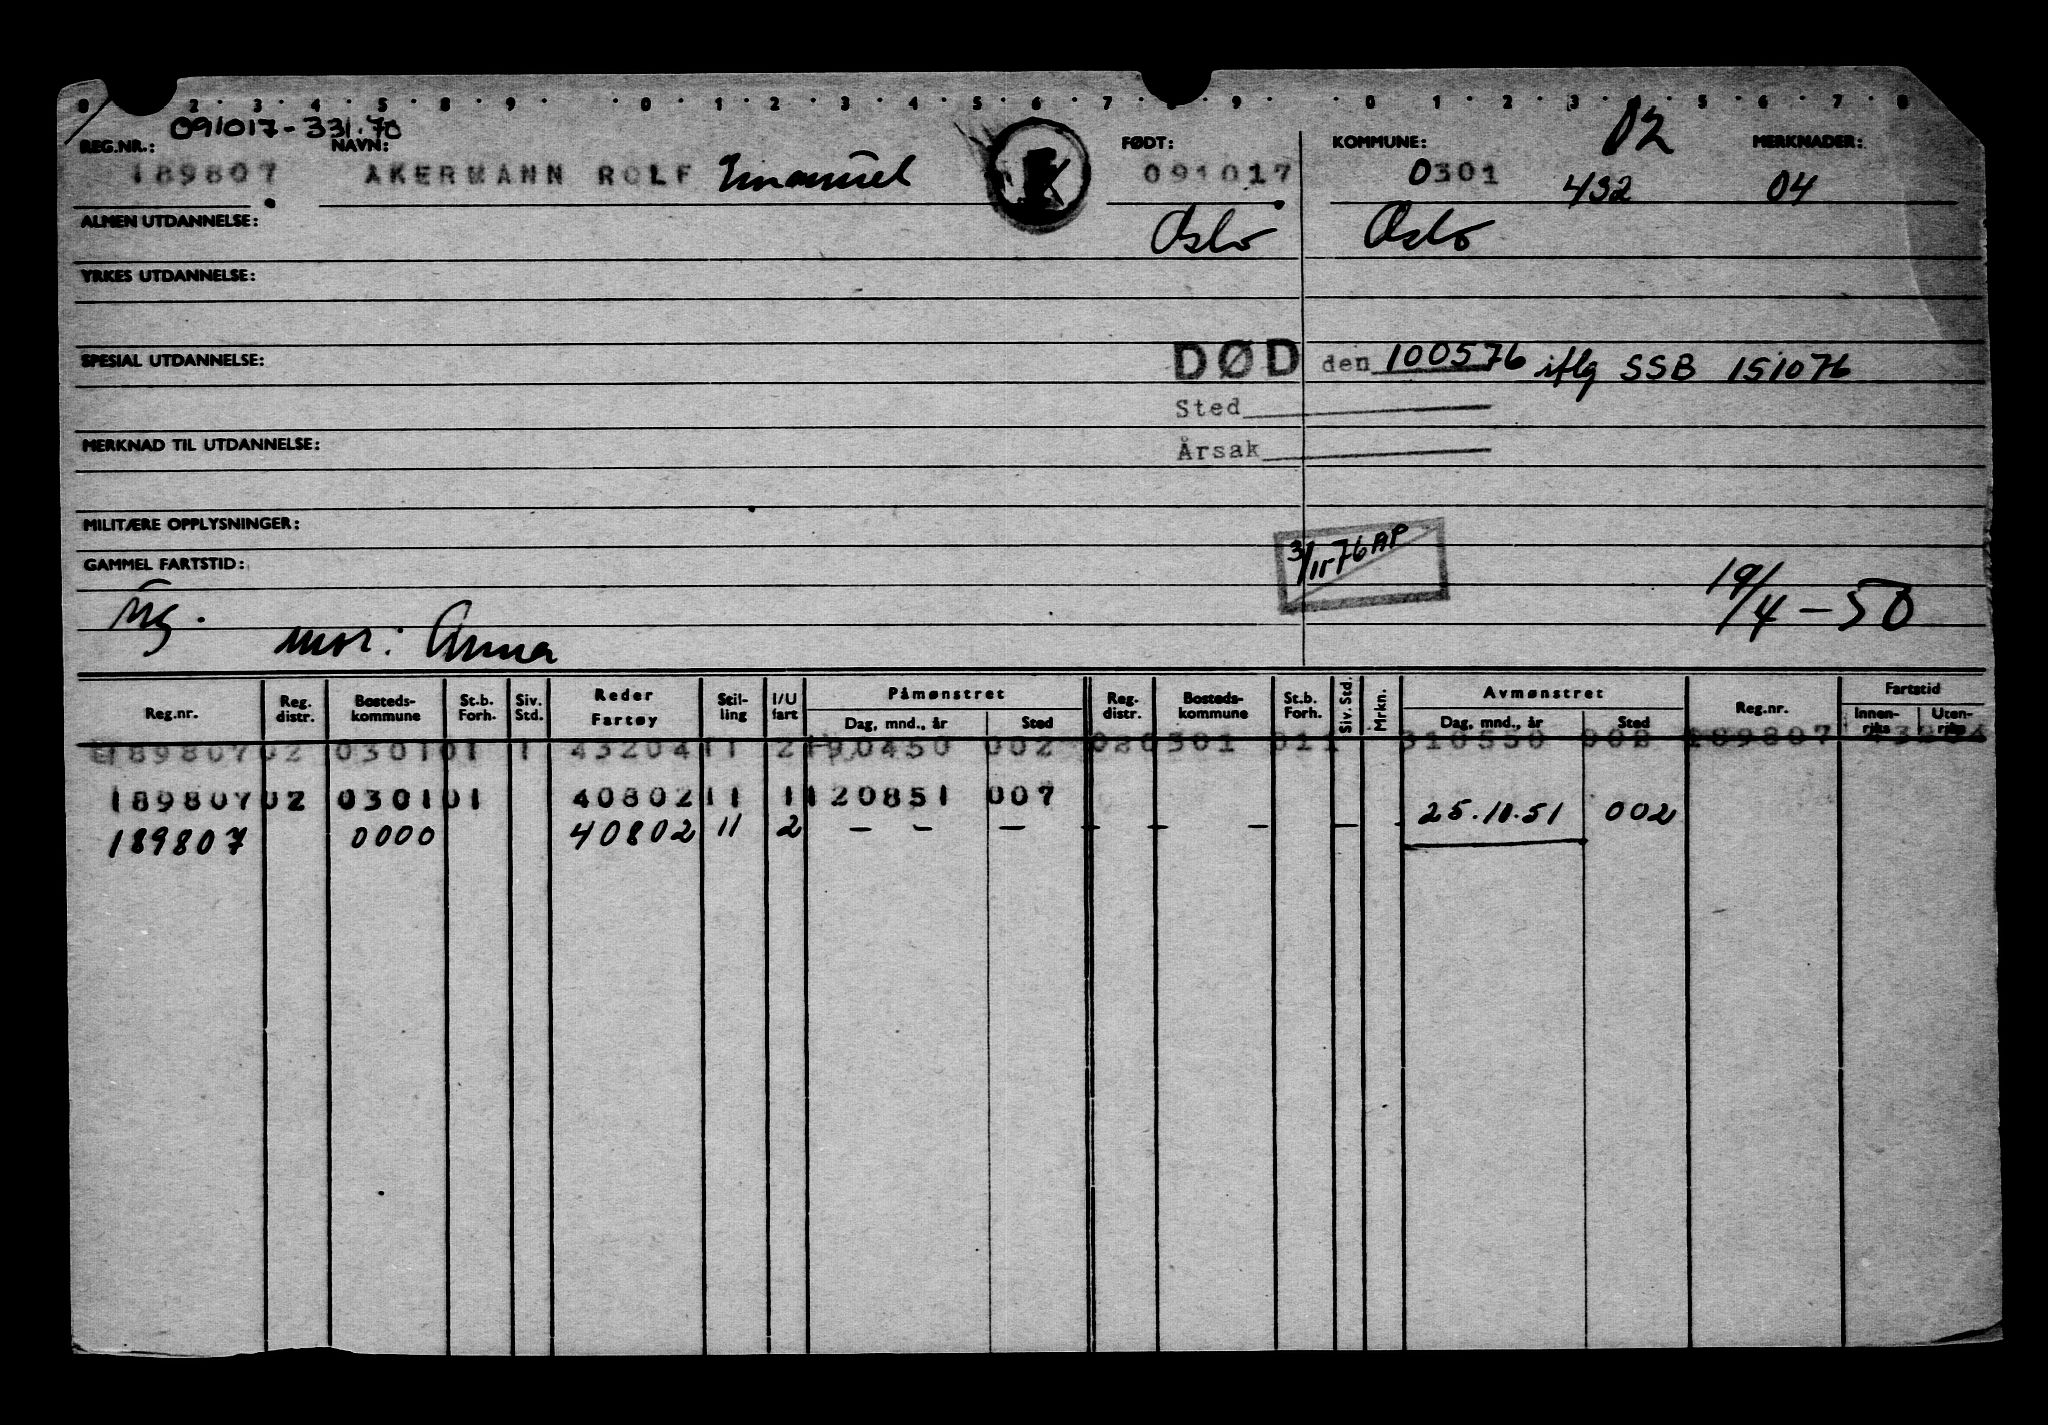 0 2 3 4 5 8 9 0 1 2 3 4 5 6 7 8 9 0 1 2 3 4 5 6 7 8
091017-331.70 02
REG.NR.: NAVN: FØDT: KOMMUNE: MERKNADER:
189807 AKERMANN ROLF Emanuel 091017 0301 432 04
ALMEN UTDANNELSE: Oslo Oslo
YRKES UTDANNELSE:
SPESIAL UTDANNELSE: DØD den 100576 iflg SSB 151076
Sted
MERKNAD TIL UTDANNELSE: Årsak
MILITÆRE OPPLYSNINGER:
3/11-76 AP
GAMMEL FARTSTID: 19/4-50
mor: Anna
Reg.nr. Reg. distr. Bosteds-kommune St.b. Forh. Siv. Std. Reder Fartøy Stil-ling I/U fart Påmønstret Dag, mnd., år Sted Reg. distr. Bosteds-kommune St.b. Forh. Siv. Std. Mrkn. Avmønstret Dag, mnd., år Sted Reg.nr. Fartstid Innen-riks Uten-riks
189807 02 0301 01 1 43204 11 2 190450 002 020301 011 310550 002 189807
189807 02 0301 01 40802 11 1 120851 007
189807 0000 40802 11 2 – – – – – – – - 25.10.51 002